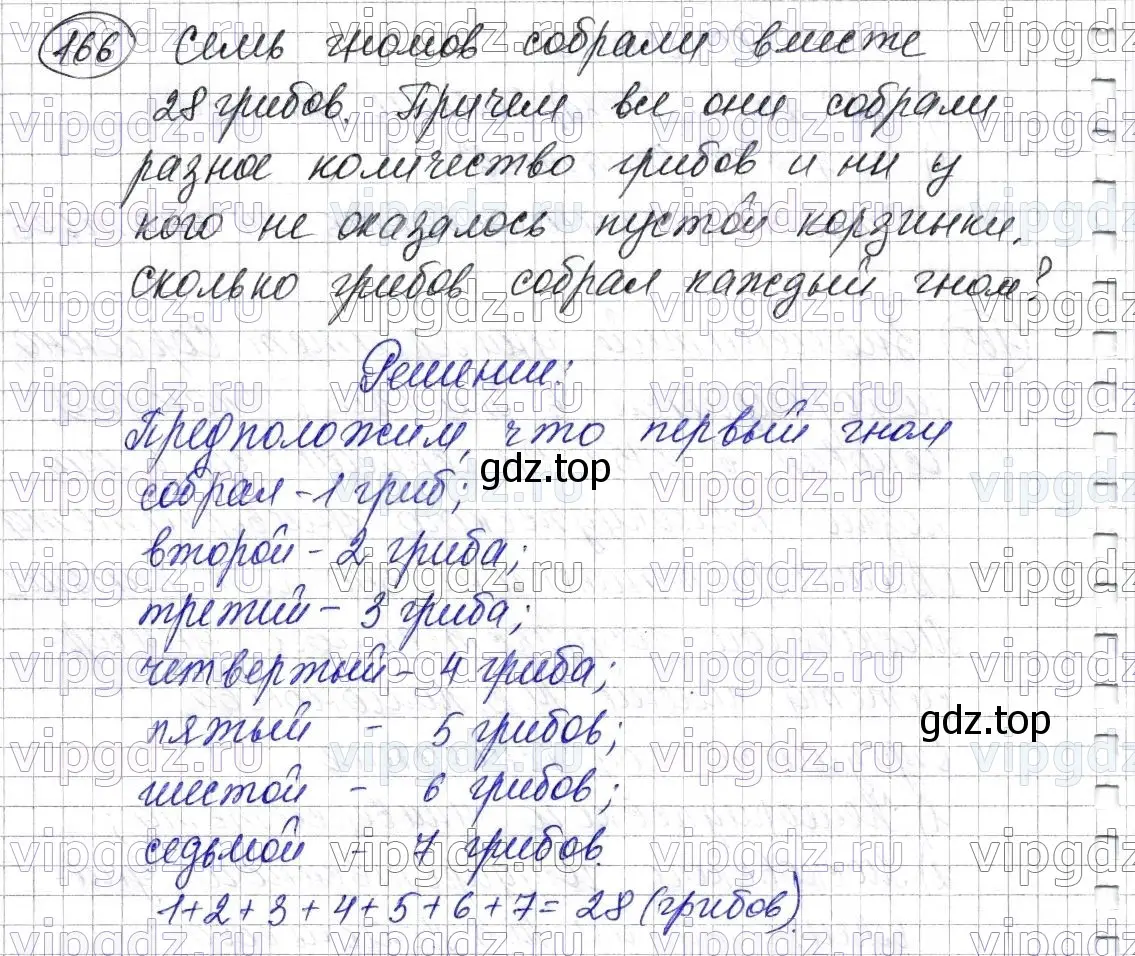 166 Семь гномов собрали вместе
28 грибов. Причем все они собрали
разное количество грибов и ни у
кого не оказалось пустой корзинки.
Сколько грибов собрал каждый гном?
Решение:
Предположим, что первый гном
собрал - 1 гриб;
gdz.top
второй - 2 гриба;
третий - 3 гриба;
четвертый - 4 гриба;
пятый - 5 грибов;
gdz.top
шестой - 6 грибов;
седьмой - 7 грибов.
1+2+3+4+5+6+7=28 (грибов).
vipgdz.ru